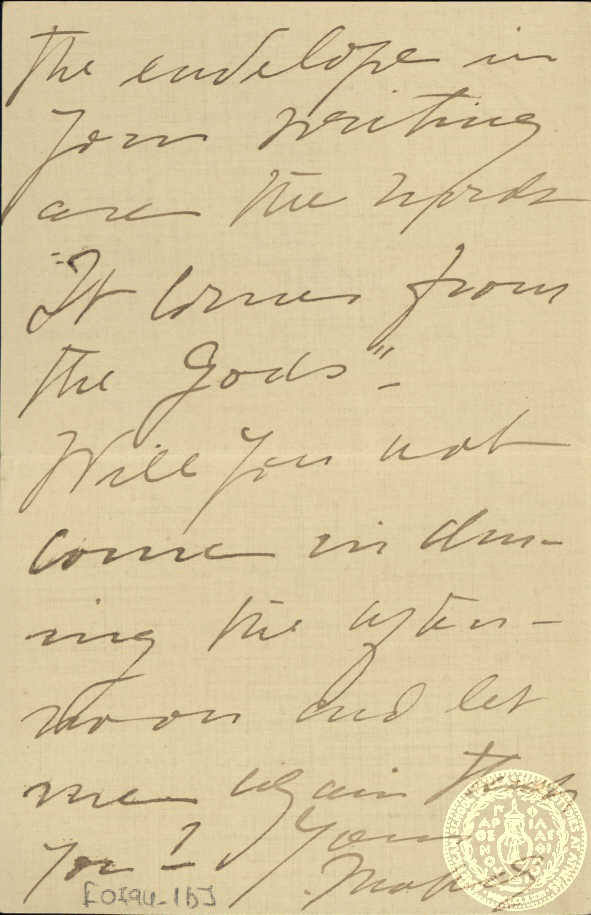 the envelope in
your writing
are the words
"It comes from
the Gods"-
Will you not
come in dur-
ing the after-
noon and let
me again thank
you? Your